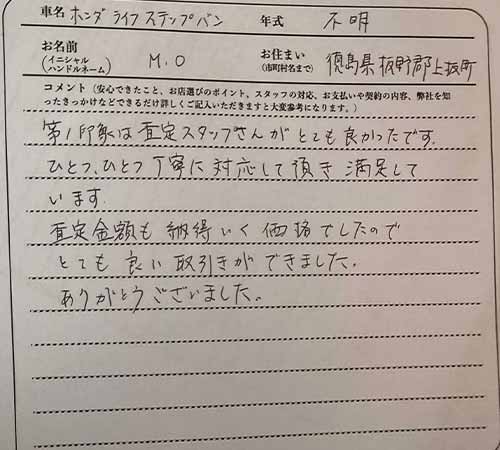 車名 ホンダ ライフ ステップバン 年式 不明
お名前 (イニシャル ハンドルネーム) M.O お住まい (市町村名まで) 徳島県板野郡上板町
コメント（安心できたこと、お店選びのポイント、スタッフの対応、お支払いや契約の内容、弊社を知
ったきっかけなどできるだけ詳しくご記入いただきますと大変参考になります。）
第1印象は査定スタッフさんがとても良かったです.
ひとつ、ひとつ丁寧に対応して頂き満足して
います.
査定金額も納得いく価格でしたので
とても良い取引きができました.
ありがとうございました。